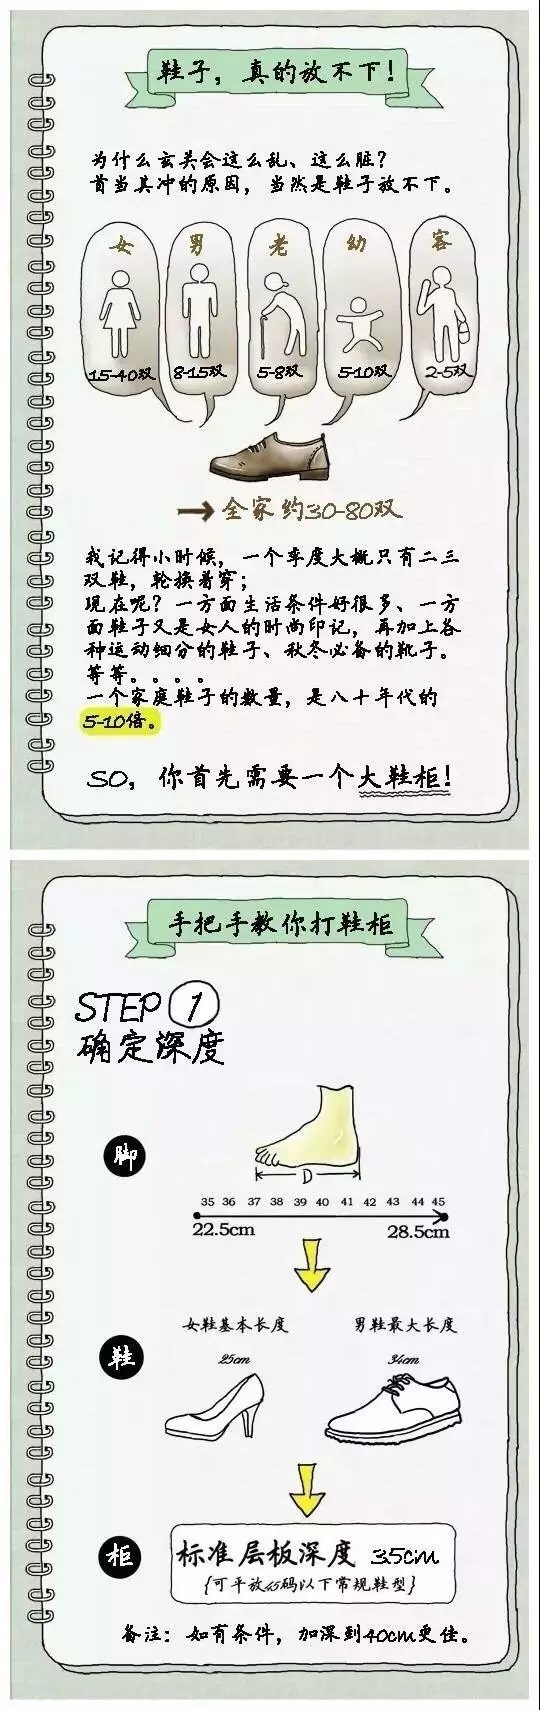 鞋子，真的放不下！
为什么玄关会这么乱、这么脏？
首当其冲的原因，当然是鞋子放不下。
女 男 老 幼 客
15-40双 8-15双 5-8双 5-10双 2-5双
→全家约30-80双
我记得小时候，一个季度大概只有二三
双鞋，轮换着穿；
现在呢？一方面生活条件好很多、一方
面鞋子又是女人的时尚印记，再加上各
种运动细分的鞋子、秋冬必备的靴子。
等等。。。。
一个家庭鞋子的数量，是八十年代的
5-10倍。
SO，你首先需要一个大鞋柜！
手把手教你打鞋柜
STEP 1
确定深度
脚
D
35 36 37 38 39 40 41 42 43 44 45
22.5cm 28.5cm
鞋
女鞋基本长度 男鞋最大长度
25cm 34cm
柜
标准层板深度 35cm
{可平放45码以下常规鞋型}
备注：如有条件，加深到40cm更佳。